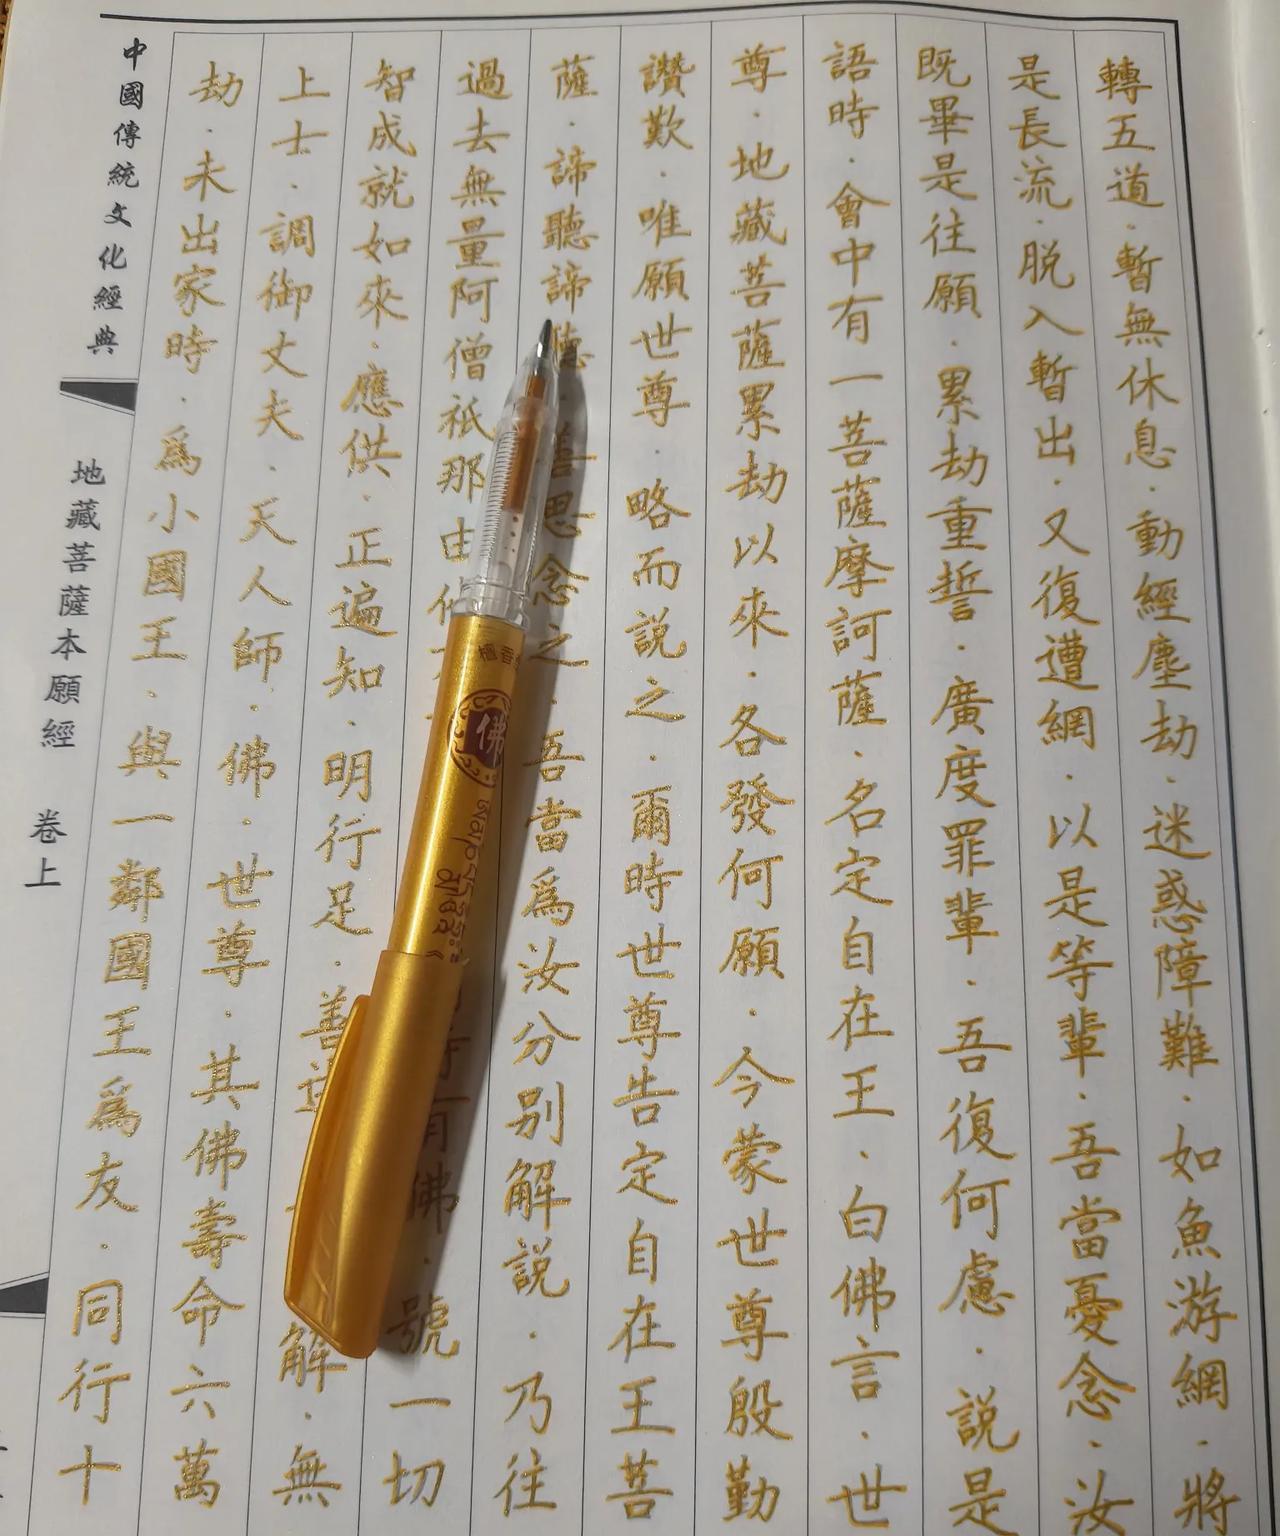 轉五道·暫無休息·動經塵劫·迷惑障難·如魚游網·將
是長流·脱入暫出·又復遭網·以是等輩·吾當憂念·汝
既畢是往願·累劫重誓·廣度罪輩·吾復何慮·説是
語時·會中有一菩薩摩訶薩·名定自在王·白佛言·世
尊·地藏菩薩累劫以來·各發何願·今蒙世尊殷勤
讚歎·唯願世尊·略而説之·爾時世尊告定自在王菩
薩·諦聽諦聽·善思念之·吾當爲汝分别解説·乃往
過去無量阿僧祇那由有佛·號一切
智成就如來·應供·正遍知·明行足·善逝解·無
上士·調御丈夫·天人師·佛·世尊·其佛壽命六萬
劫·未出家時·爲小國王·與一鄰國王爲友·同行十
中國傳統文化經典
地藏菩薩本願經 卷上
檀香
佛